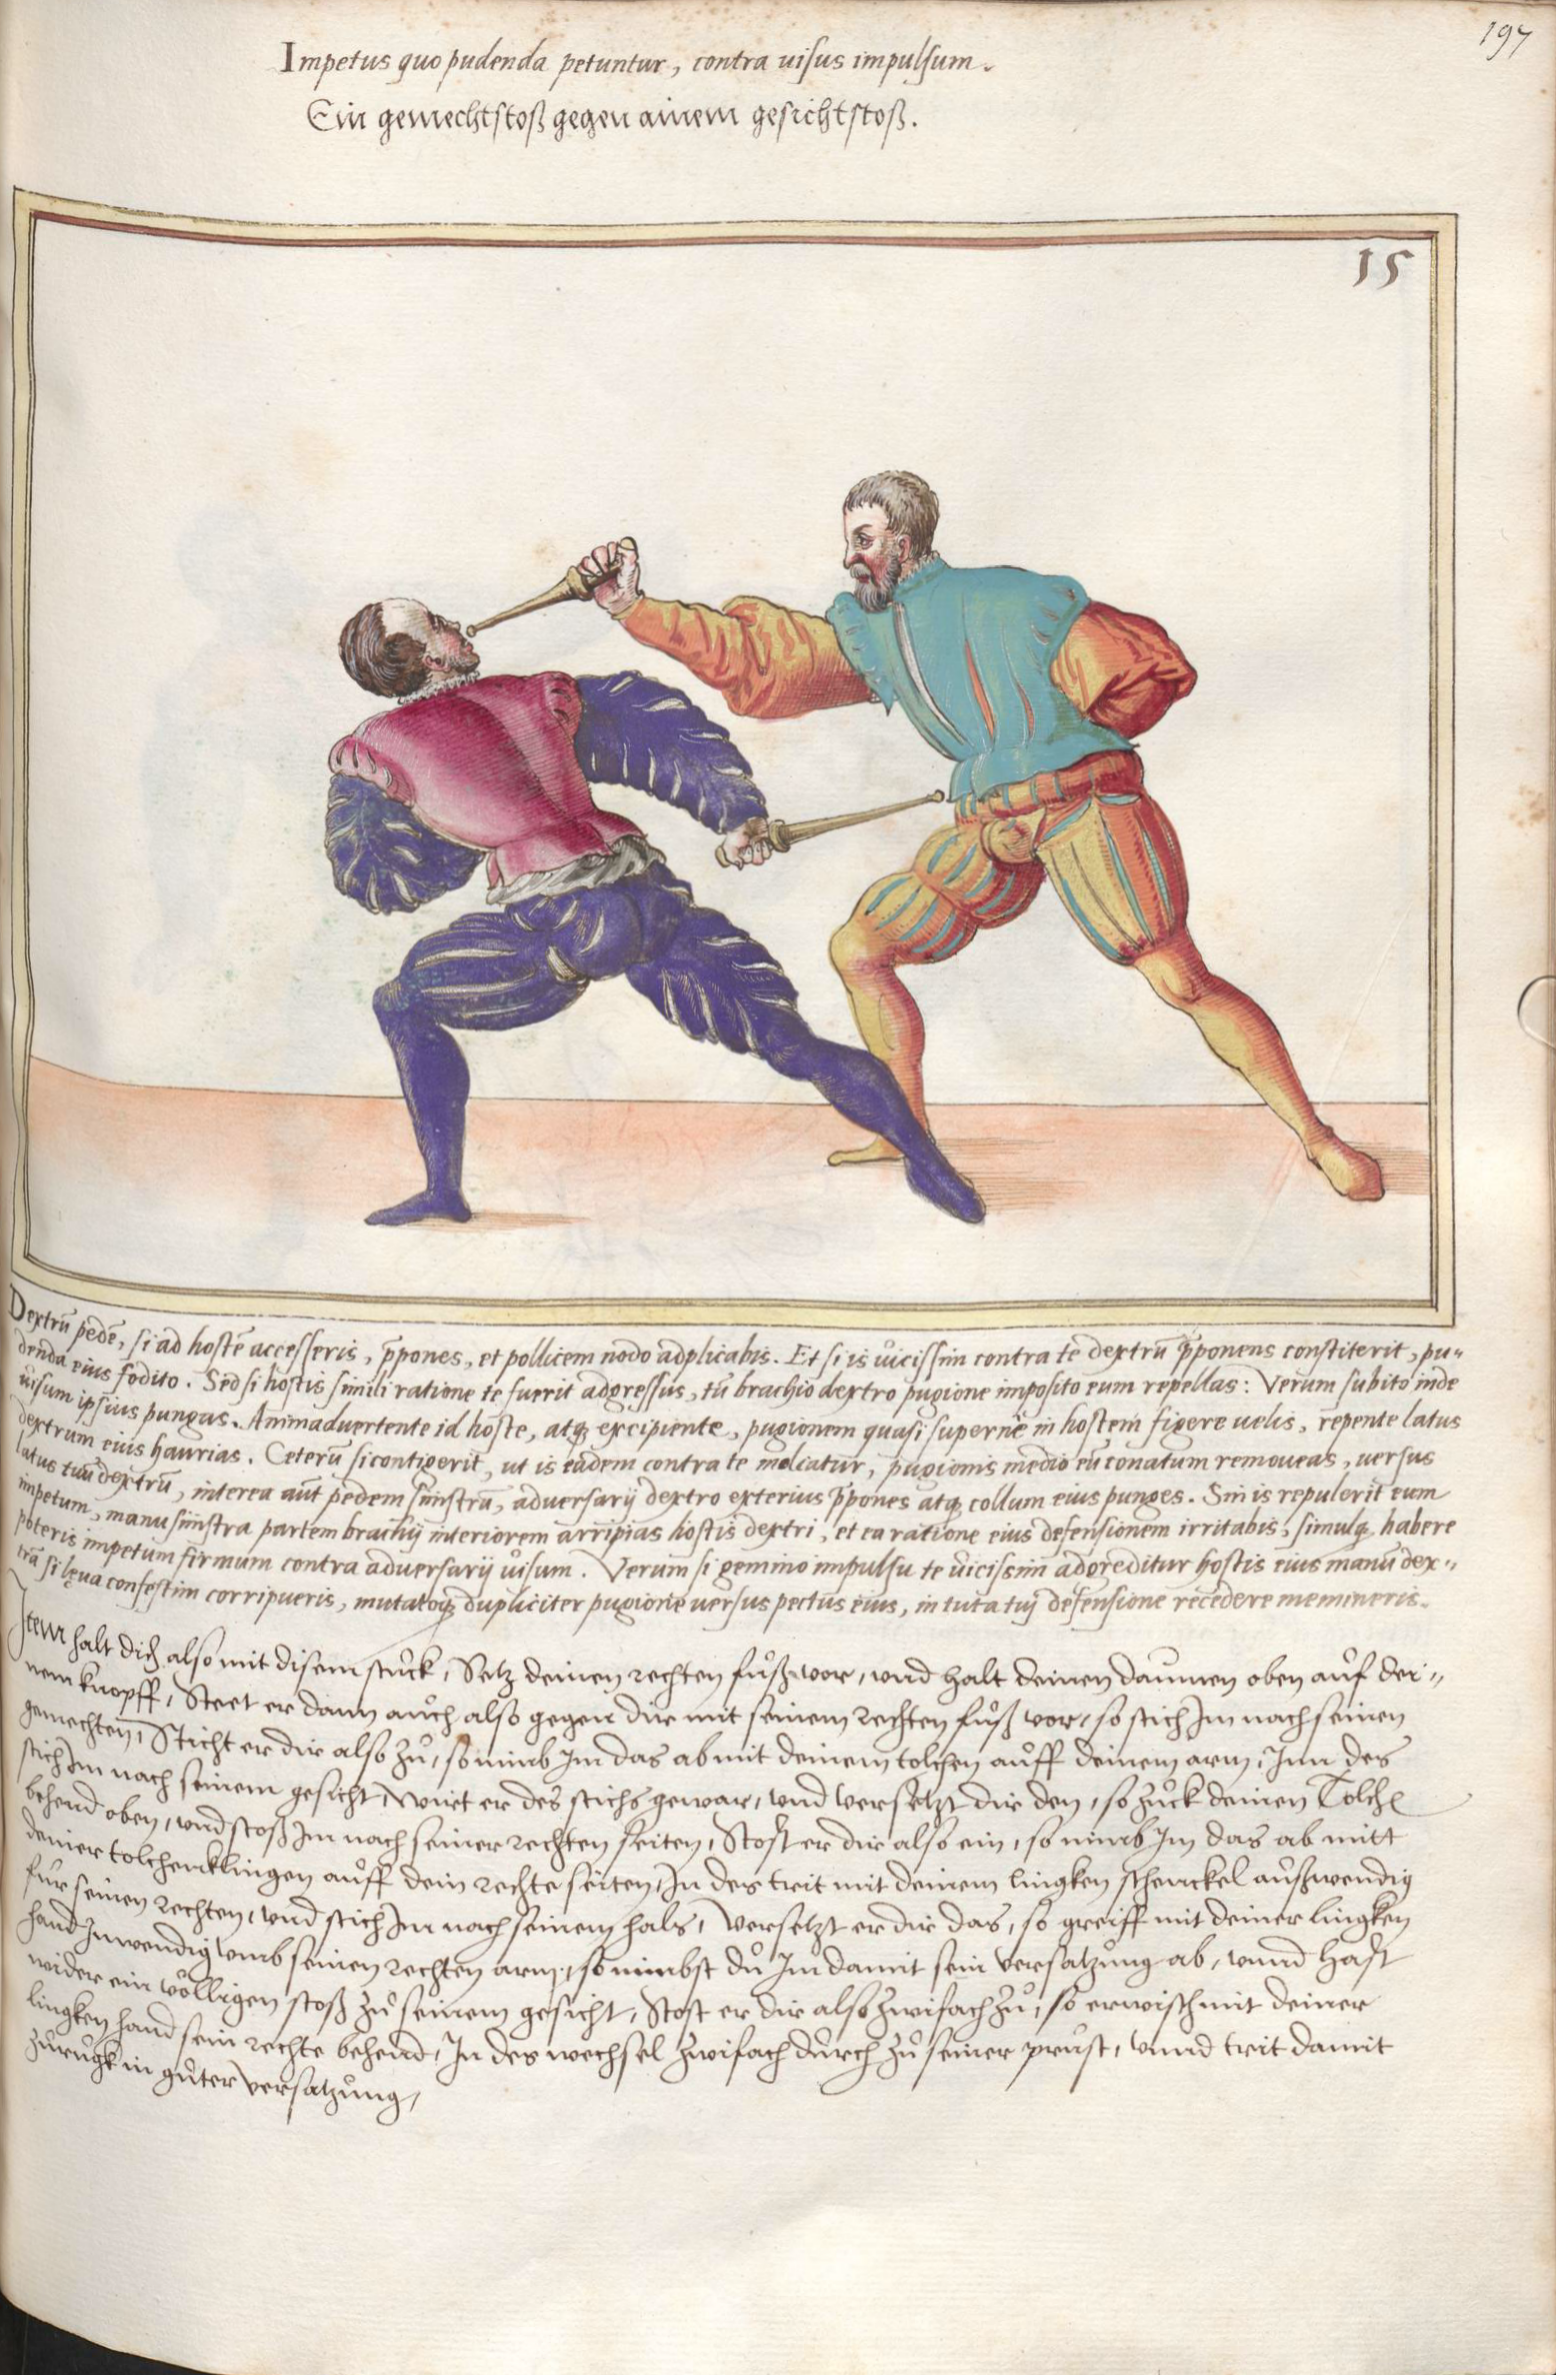 197
Impetus quo pudenda petuntur, contra uisus impulsum.
Ein gemechtstoß gegen ainem gesichtstoß.
15
Dextrū pedē, si ad hostē accesseris, p̄pones, et pollicem nodo adplicabis. Et si is uicissim contra te dextrū p̄ponens constiterit, pu„
denda eius fodito. Sed si hostis simili ratione te fuerit adgressus, tū brachio dextro pugione imposito eum repellas: Verum subito inde
uisum ipsius pungas. Animaduertente id hoste, atq; excipiente, pugionem quasi supernè in hostem figere uelis, repente latus
dextrum eius haurias. Ceterū si contigerit, ut is eadem contra te moliatur, pugionis medio eū conatum remoueas, uersus
latus tuū dextrū, interea aūt pedem sinistrū, aduersarij dextro exterius p̄pones atq; collum eius punges. Sin is repulerit eum
impetum, manu sinistra partem brachij interiorem arripias hostis dextri, et ea ratione eius defensionem irritabis, simulq; habere
poteris impetum firmum contra aduersarij uisum. Verum si gemino impulsu te uicissim adgreditur hostis eius manū dex„
trā si lęua confestim corripueris, mutatoq; dupliciter pugione uersus pectus eius, in tuta tui defensione recedere memineris.
Item halt dich also mit disem stuck, Setz deinen rechten fuoß vor, vnd halt deinen daumen oben auf dei„
nem knopff, Steet er dann auch also gegen dir mit seinem rechten fuoß vor, so stich Im nach seinen
gemechten, Sticht er dir also zuo, so nimb Im das ab mit deinem tolchen auff deinem arm, Inn des
stich Im nach seinem gesicht, Wirt er des stichs gewar, vnd versetzt dir den, so zuck deinen Tolchen
behend oben, vnd stoß Im nach seiner rechten seiten, Stost er dir also ein, so nimb Im das ab mitt
deiner tolchenklingen auff dein rechte seiten, In des trit mit deinem lingken schenckel außwendig
für seinen rechten, vnd stich Im nach seinem hals, Versetzt er dir das, so greiff mit deiner lingken
hand Inwendig vmb seinen rechten arm, so nimbst du Im damit sein versatzung ab, vnnd hast
wider ein völligen stoß zuo seinem gesicht, Stost er dir also zwifach zuo, so erwisch mit deiner
lingken hand sein rechte behend, In des wechsel zwifach durch zuo seiner prust, vnnd trit damit
zuruck in guoter versatzung,